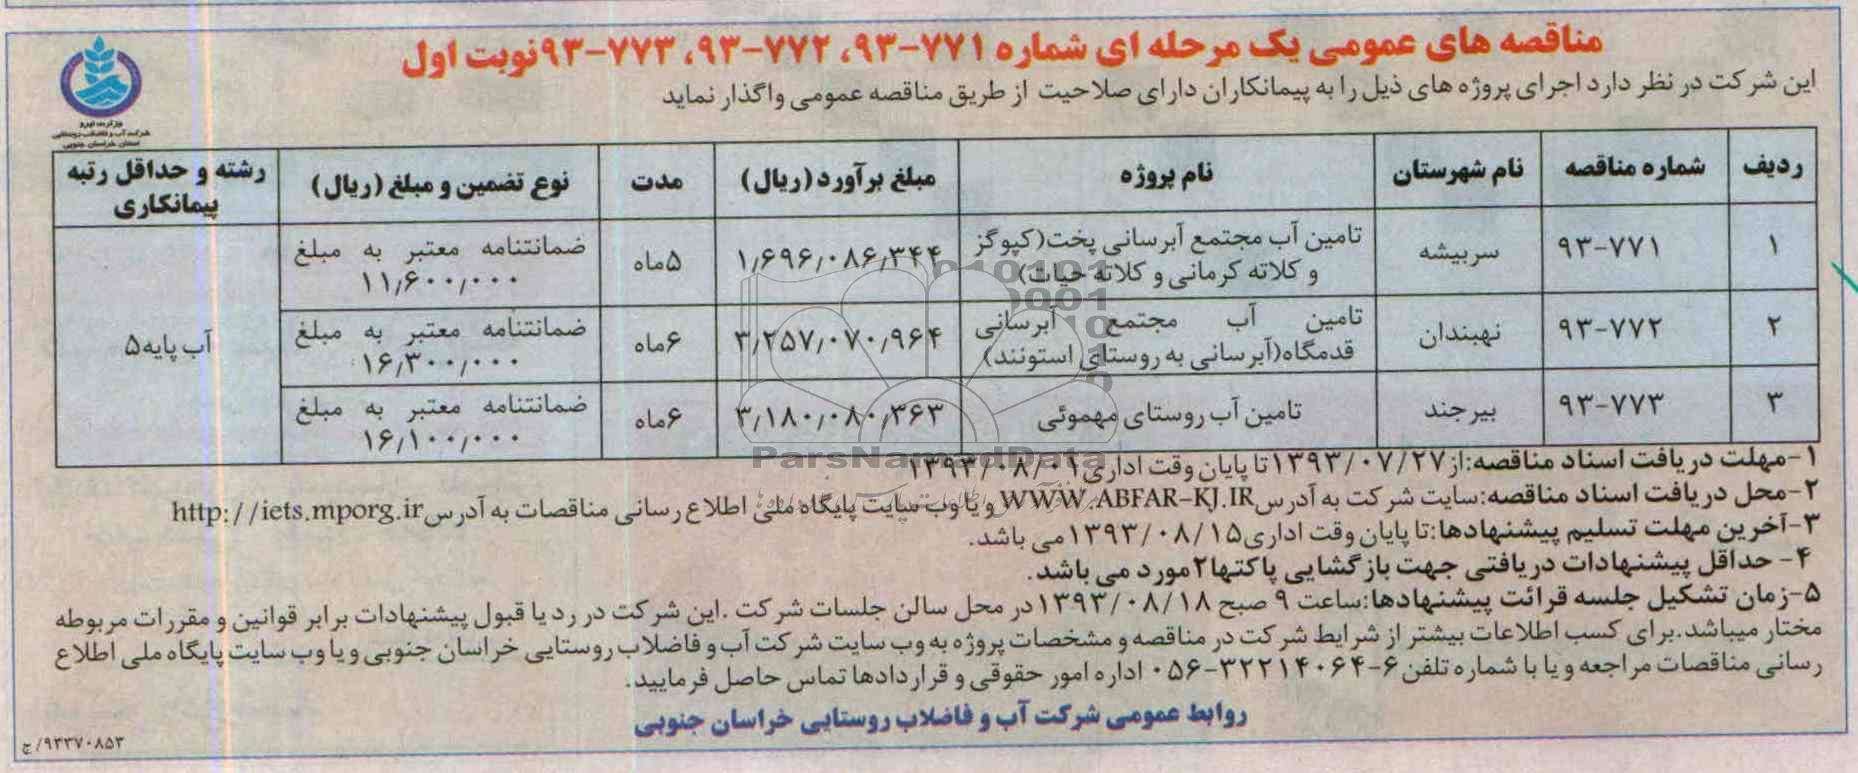 مناقصه های عمومی یک مرحله ای شماره ۷۷۱-۹۳، ۷۷۲-۹۳، ۷۷۳-۹۳نوبت اول
این شرکت در نظر دارد اجرای پروژه های ذیل را به پیمانکاران دارای صلاحیت از طریق مناقصه عمومی واگذار نماید
وزارت نیرو
شرکت آب و فاضلاب روستایی
استان خراسان جنوبی
ردیف شماره مناقصه نام شهرستان نام پروژه مبلغ برآورد (ریال) مدت نوع تضمین و مبلغ (ریال) رشته و حداقل رتبه پیمانکاری
۱ ۹۳-۷۷۱ سربیشه تامین آب مجتمع آبرسانی پخت(کپوگز و کلاته کرمانی و کلاته حیات) ۱٫۶۹۶٫۰۸۶٫۳۴۴ ۵ماه ضمانتنامه معتبر به مبلغ ۱۱٫۶۰۰٫۰۰۰ آب پایه۵
۲ ۹۳-۷۷۲ نهبندان تامین آب مجتمع آبرسانی قدمگاه(آبرسانی به روستای استوند) ۳٫۲۵۷٫۰۷۰٫۹۶۴ ۶ماه ضمانتنامه معتبر به مبلغ ۱۶٫۳۰۰٫۰۰۰
۳ ۹۳-۷۷۳ بیرجند تامین آب روستای مهموئی ۳٫۱۸۰٫۰۸۰٫۳۶۳ ۶ماه ضمانتنامه معتبر به مبلغ ۱۶٫۱۰۰٫۰۰۰
۱-مهلت دریافت اسناد مناقصه:از۱۳۹۳/۰۷/۲۷تا پایان وقت اداری ۱۳۹۳/۰۸/۰۱
۲-محل دریافت اسناد مناقصه:سایت شرکت به آدرسWWW.ABFAR-KJ.IR و یا وب سایت پایگاه ملی اطلاع رسانی مناقصات به آدرسhttp://iets.mporg.ir
۳-آخرین مهلت تسلیم پیشنهادها:تا پایان وقت اداری۱۳۹۳/۰۸/۱۵می باشد.
۴- حداقل پیشنهادات دریافتی جهت بازگشایی پاکتها۲مورد می باشد.
۵-زمان تشکیل جلسه قرائت پیشنهادها:ساعت ۹ صبح ۱۳۹۳/۰۸/۱۸در محل سالن جلسات شرکت .این شرکت در رد یا قبول پیشنهادات برابر قوانین و مقررات مربوطه
مختار میباشد.برای کسب اطلاعات بیشتر از شرایط شرکت در مناقصه و مشخصات پروژه به وب سایت شرکت آب و فاضلاب روستایی خراسان جنوبی و یا وب سایت پایگاه ملی اطلاع
رسانی مناقصات مراجعه و یا با شماره تلفن ۶-۳۲۲۱۴۰۶۴-۰۵۶ اداره امور حقوقی و قراردادها تماس حاصل فرمایید.
روابط عمومی شرکت آب و فاضلاب روستایی خراسان جنوبی
۹۳۳۷۰۸۵۳/ج
ParsNamadData